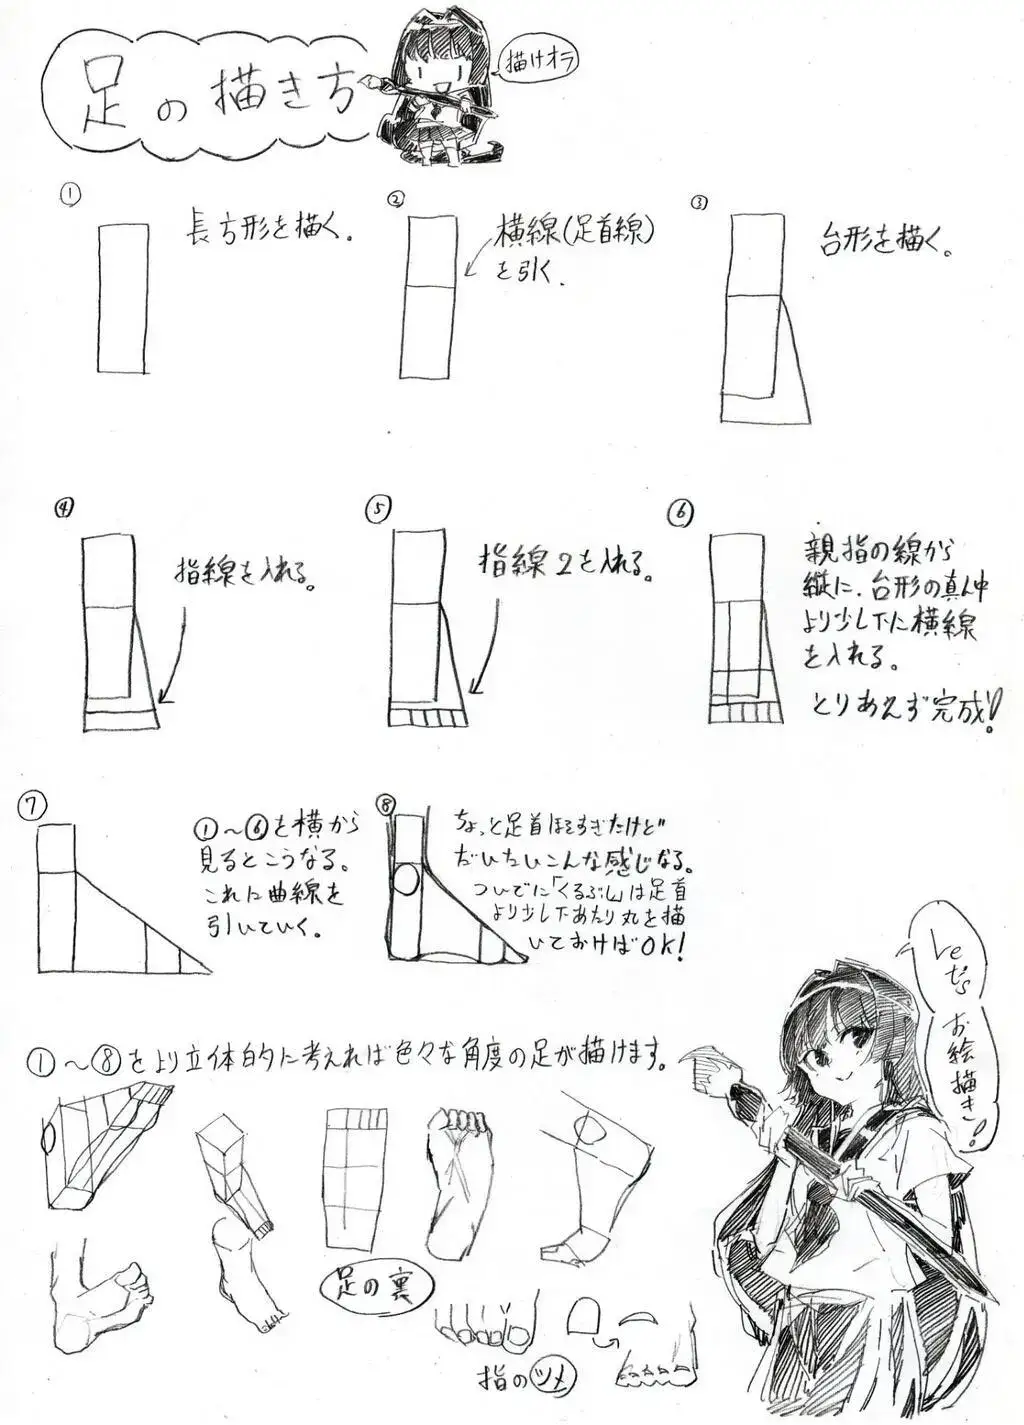 足の描き方
描けオラ
①
長方形を描く.
②
横線(足首線)
を引く.
③
台形を描く。
④
指線を入れる。
⑤
指線2を入れる。
⑥
親指の線から
縦に、台形の真ん中
より少し下に横線
を入れる。
とりあえず完成!
⑦
①～⑥を横から
見るとこうなる。
これに曲線を
引いていく。
⑧
ちょっと足首ほそすぎたけど
だいたいこんな感じなる。
ついでに「くるぶし」は足首
より少し下あたり丸を描
いておけばOK!
①～⑧をより立体的に考えれば色々な角度の足が描けます。
Let's
お絵描き!
足の裏
指のツメ